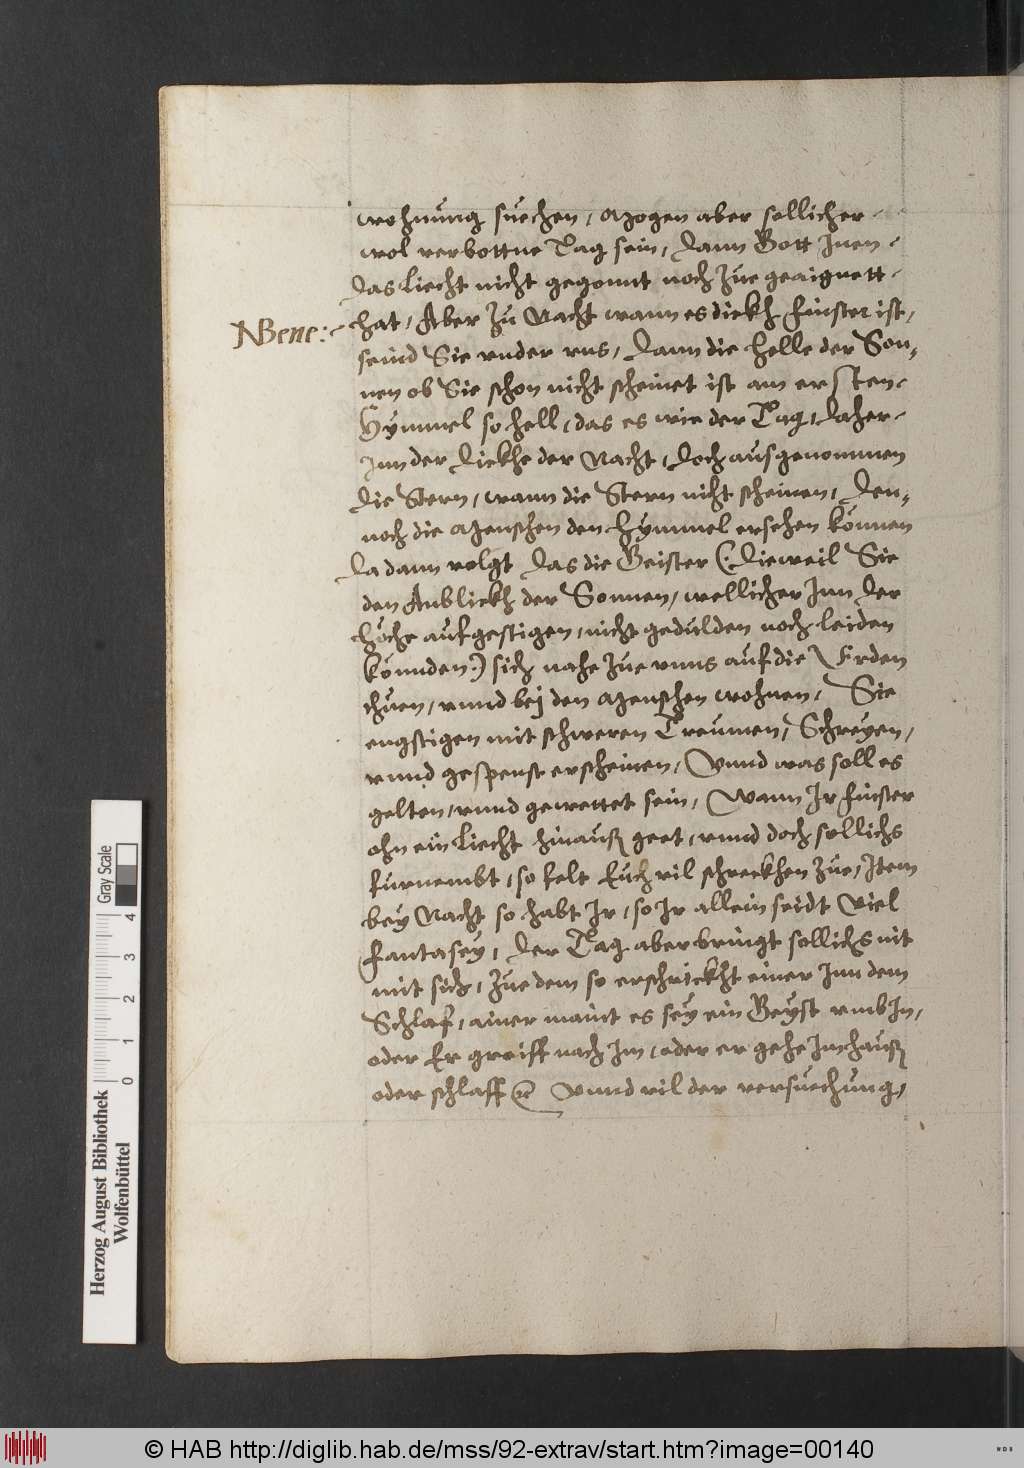 wohnung suechen, mogen aber sollicher
wol verbottne Tag sein, dann Gott Inen
das liecht nicht gegonnt noch zue geaignett
hat, Aber zu Nacht wann es dickh finster ist,
NBene:
seind Sie vnder vns, dann die helle der Son-
nen ob Sie schon nicht scheinet ist am ersten
Hymmel so hell, das es wie der Tag, daher
Inn der dickhe der Nacht, doch ausgenommen
die Stern, wann die Stern nicht scheinen, den-
noch die Menschen den hymmel ersehen können
da dann volgt das die Geister (: dieweil Sie
den Anblickh der Sonnen, wellicher Inn der
höche aufgestigen, nicht gedulden noch leiden
könnden:) sich nahe zue vnns auf die Erden
thuen, vnnd bej den Menschen wohnen, Sie
engstigen mit schweren Treumen, Schreyen,
vnnd gespenst erscheinen, Vnnd was soll es
gelten, vnnd gewettet sein, Wann Ir finster
ohn ein liecht hinauß geet, vnnd doch sollichs
furnembt, so felt Euch vil schreckhen zue, Item
bey Nacht so habt Ir, so Ir allein seidt Viel
fantasey, der Tag aber bringt sollichs nit
mit sich, zue dem so erschrickht einer Inn dem
Schlaf, ainer maint es sey ein Geyst vmb In,
oder Er greiff nach Im, oder er gehe Im hauß
oder schlaff Vnnd vil der versuechung,
Herzog August Bibliothek
Wolfenbüttel
0 1 2 3 4
Gray Scale
© HAB http://diglib.hab.de/mss/92-extrav/start.htm?image=00140